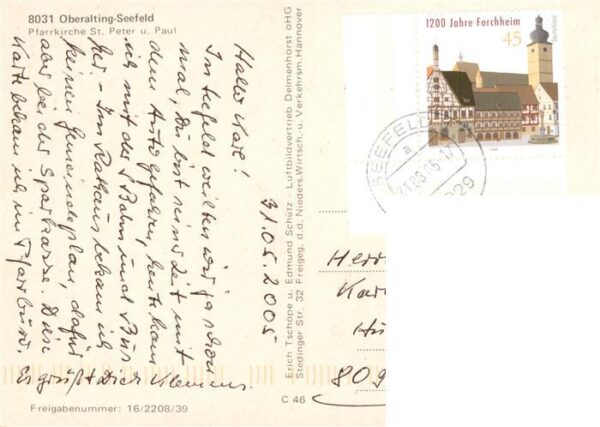 8031 Oberalting-Seefeld
Pfarrkirche St. Peter u. Paul
31.05.2005
Hallo Karl!
In Seefeld weilten wir ja schon
mal, Du bist seinerzeit mit
dem Auto gefahren, heute kam
ich mit der S Bahn und Bus
her. Im Rathaus bekam ich
keinen Gemeindeplan, dafür
aber bei der Sparkasse. Diese
Karte bekam ich im Pfarrbüro.
Es grüßt Dich Klemens.
Freigabenummer: 16/2208/39
C 46
Erich Tschöpe u. Edmund Schütz - Luftbildvertrieb Delmenhorst oHG
Stedinger Str. 32 Freigeg. d.d. Nieders. Wirtsch. u. Verkehrsm. Hannover
1200 Jahre Forchheim
45
Deutschland
SEEFELD
a
31.05.05-17
Herr
Kar
809